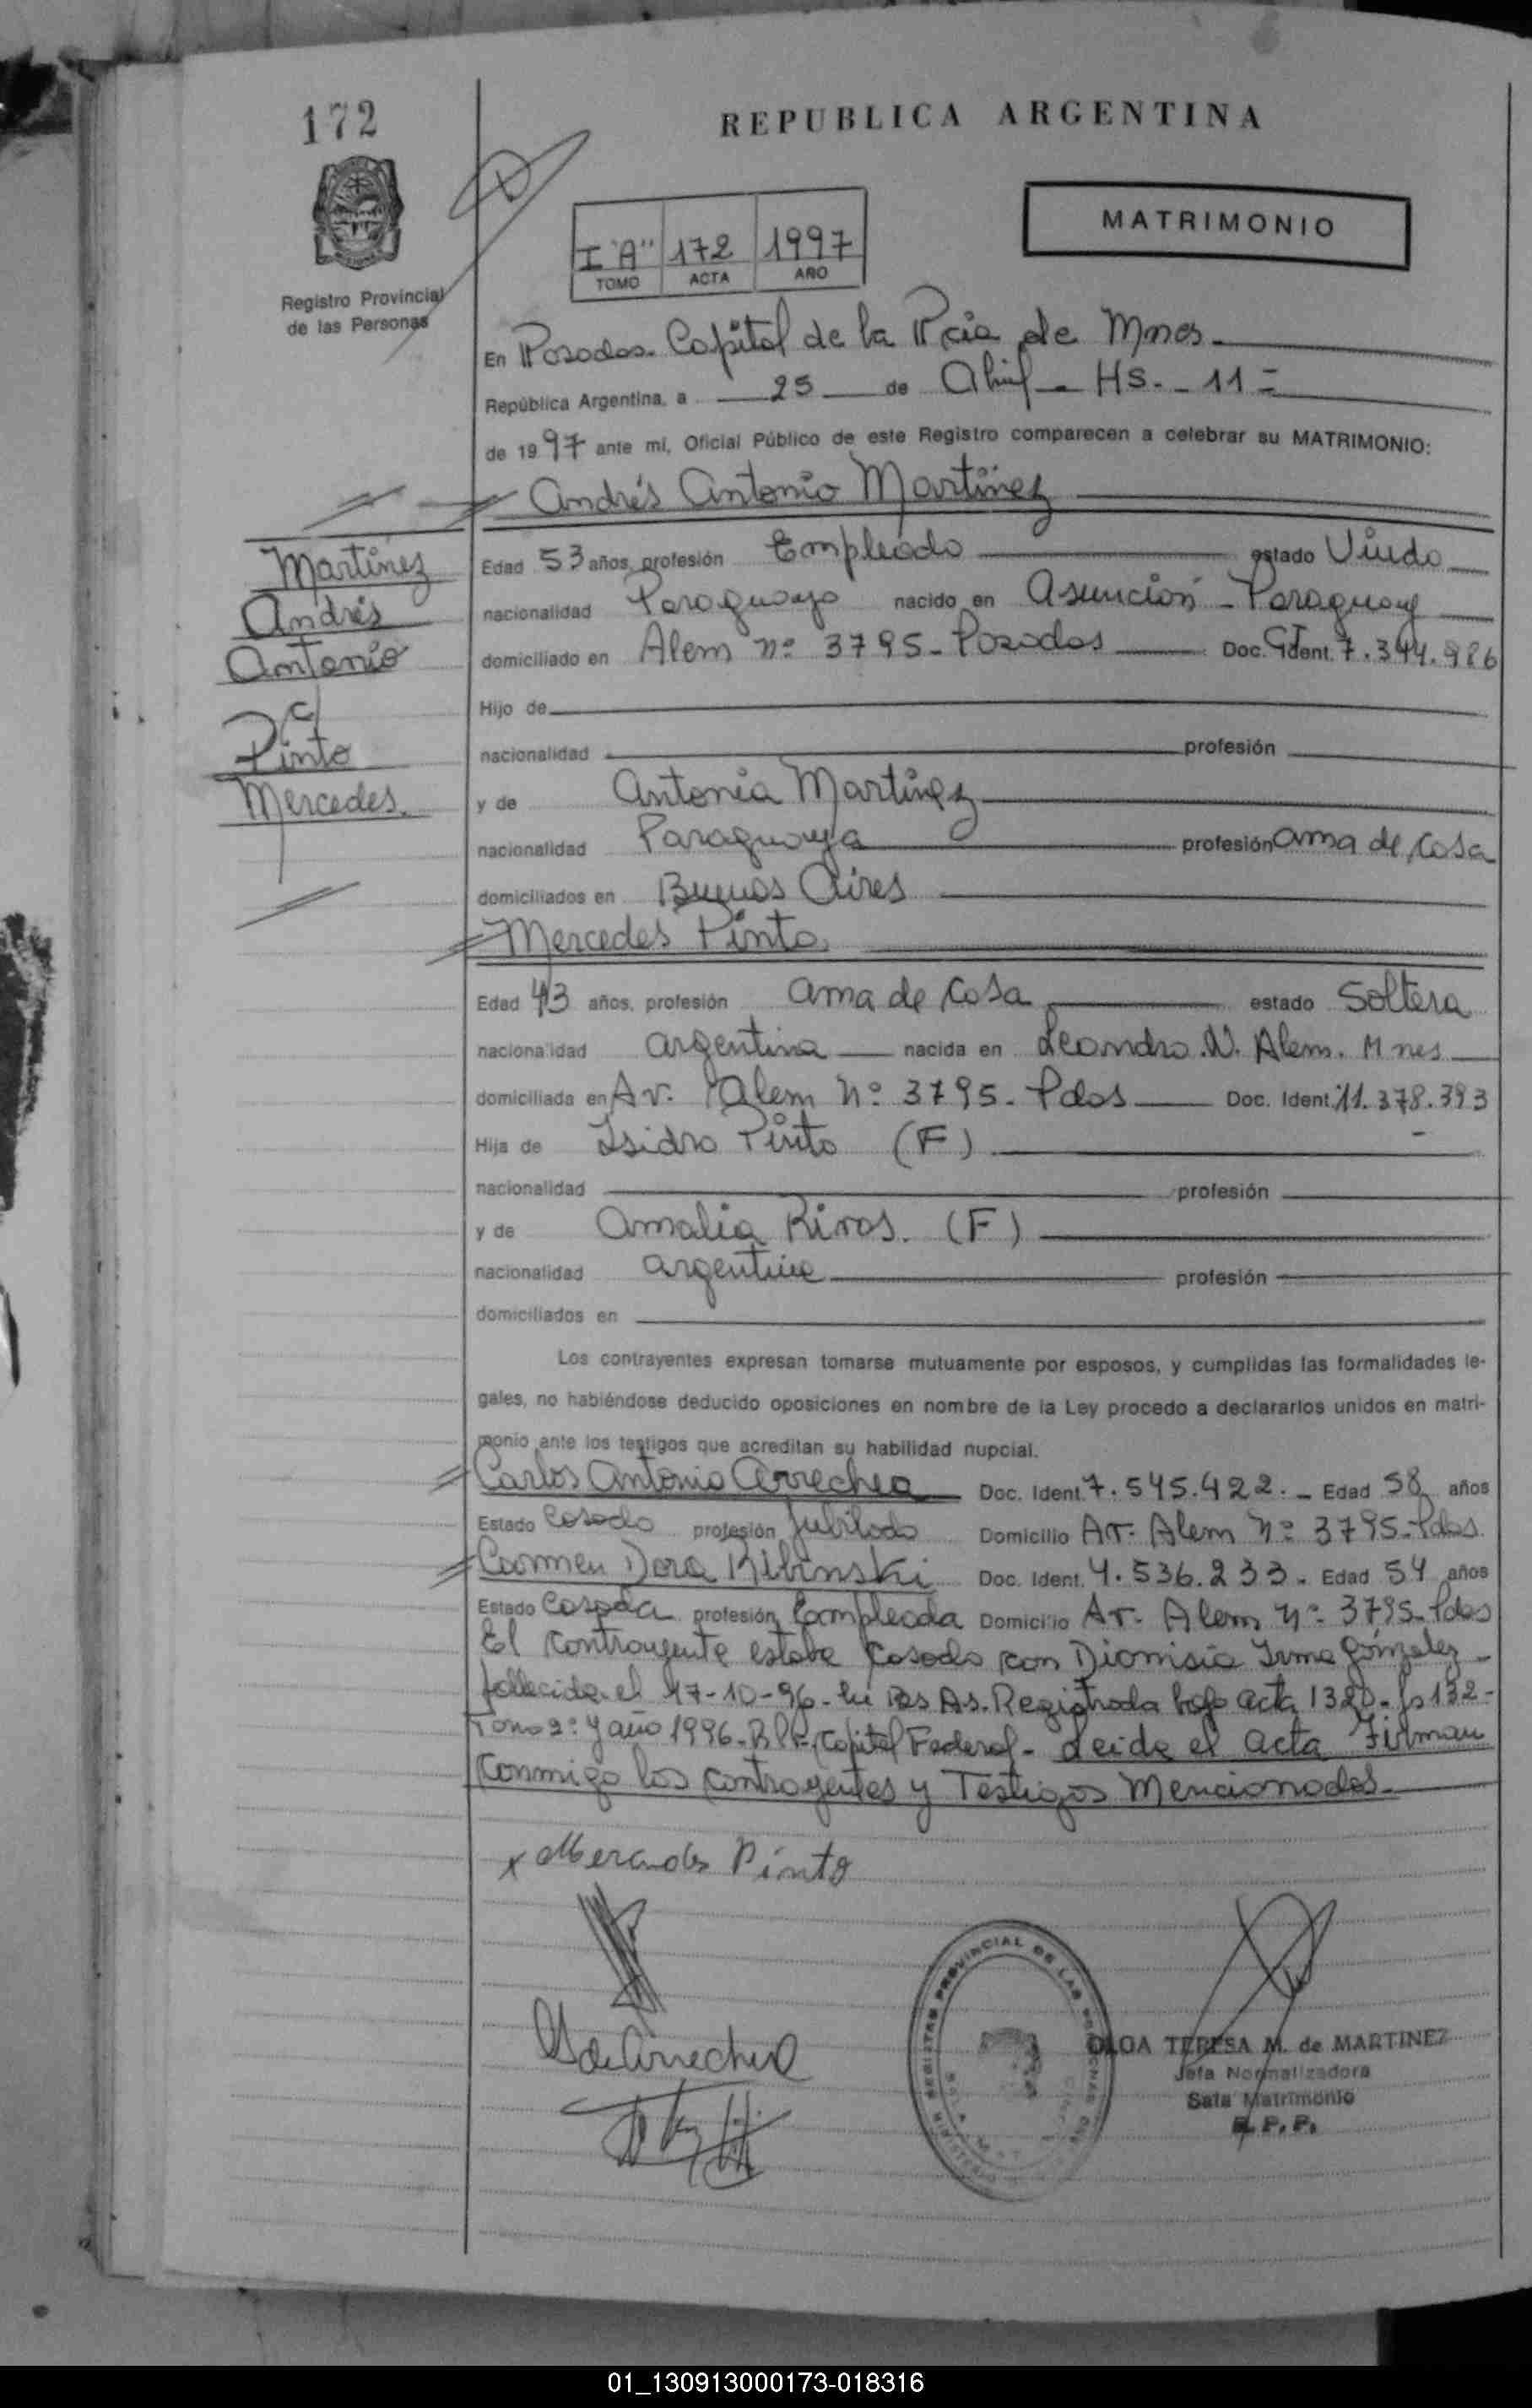 172
REPUBLICA ARGENTINA
MATRIMONIO
I "A" 172 1997
TOMO ACTA AÑO
Registro Provincial
de las Personas
En Posadas. Capital de la Pcia de Mnes.
República Argentina, a 25 de Abril - HS. - 11 =
de 1997 ante mí, Oficial Público de este Registro comparecen a celebrar su MATRIMONIO:
Andrés Antonio Martínez
Martínez
Andrés
Antonio
c/
Pinto
Mercedes.
Edad 53 años, profesión Empleado estado Viudo
nacionalidad Paraguayo nacido en Asunción - Paraguay
domiciliado en Alem nº 3795 - Posadas Doc. Ident. CI 7.344.986
Hijo de
nacionalidad profesión
y de Antonia Martínez
nacionalidad Paraguaya profesión ama de casa
domiciliados en Buenos Aires
Mercedes Pinto.
Edad 43 años, profesión ama de casa estado Soltera
nacionalidad argentina nacida en Leandro N. Alem. Mnes
domiciliada en Av. Alem nº 3795 - Pdas Doc. Ident. 11.378.393
Hija de Isidro Pinto (F)
nacionalidad profesión
y de Amalia Rivas. (F)
nacionalidad argentina profesión
domiciliados en
Los contrayentes expresan tomarse mutuamente por esposos, y cumplidas las formalidades le-
gales, no habiéndose deducido oposiciones en nombre de la Ley procedo a declararlos unidos en matri-
monio ante los testigos que acreditan su habilidad nupcial.
Carlos Antonio Arrechea Doc. Ident. 7.545.422. - Edad 58 años
Estado Casado profesión Jubilado Domicilio Av. Alem nº 3795 - Pdas.
Carmen Dora Ribinski Doc. Ident. 4.536.233. Edad 54 años
Estado Casada profesión Empleada Domicilio Av. Alem nº 3795 - Pdas
El contrayente estaba casado con Dionisia Irma Gónzalez -
fallecida el 17-10-96 - en Bs As. Registrada bajo acta 1320 - fs 132 -
Tomo 2º y año 1996 - Capital Federal - Leida el acta Firman
Conmigo los contrayentes y Testigos Mencionados.
x Mercedes Pinto
de Arrechea
REGISTRO PROVINCIAL DE LAS PERSONAS
MINISTERIO
OLGA TERESA M. de MARTINEZ
Jefa Normalizadora
Sala Matrimonio
R.P.P.
01_130913000173-018316